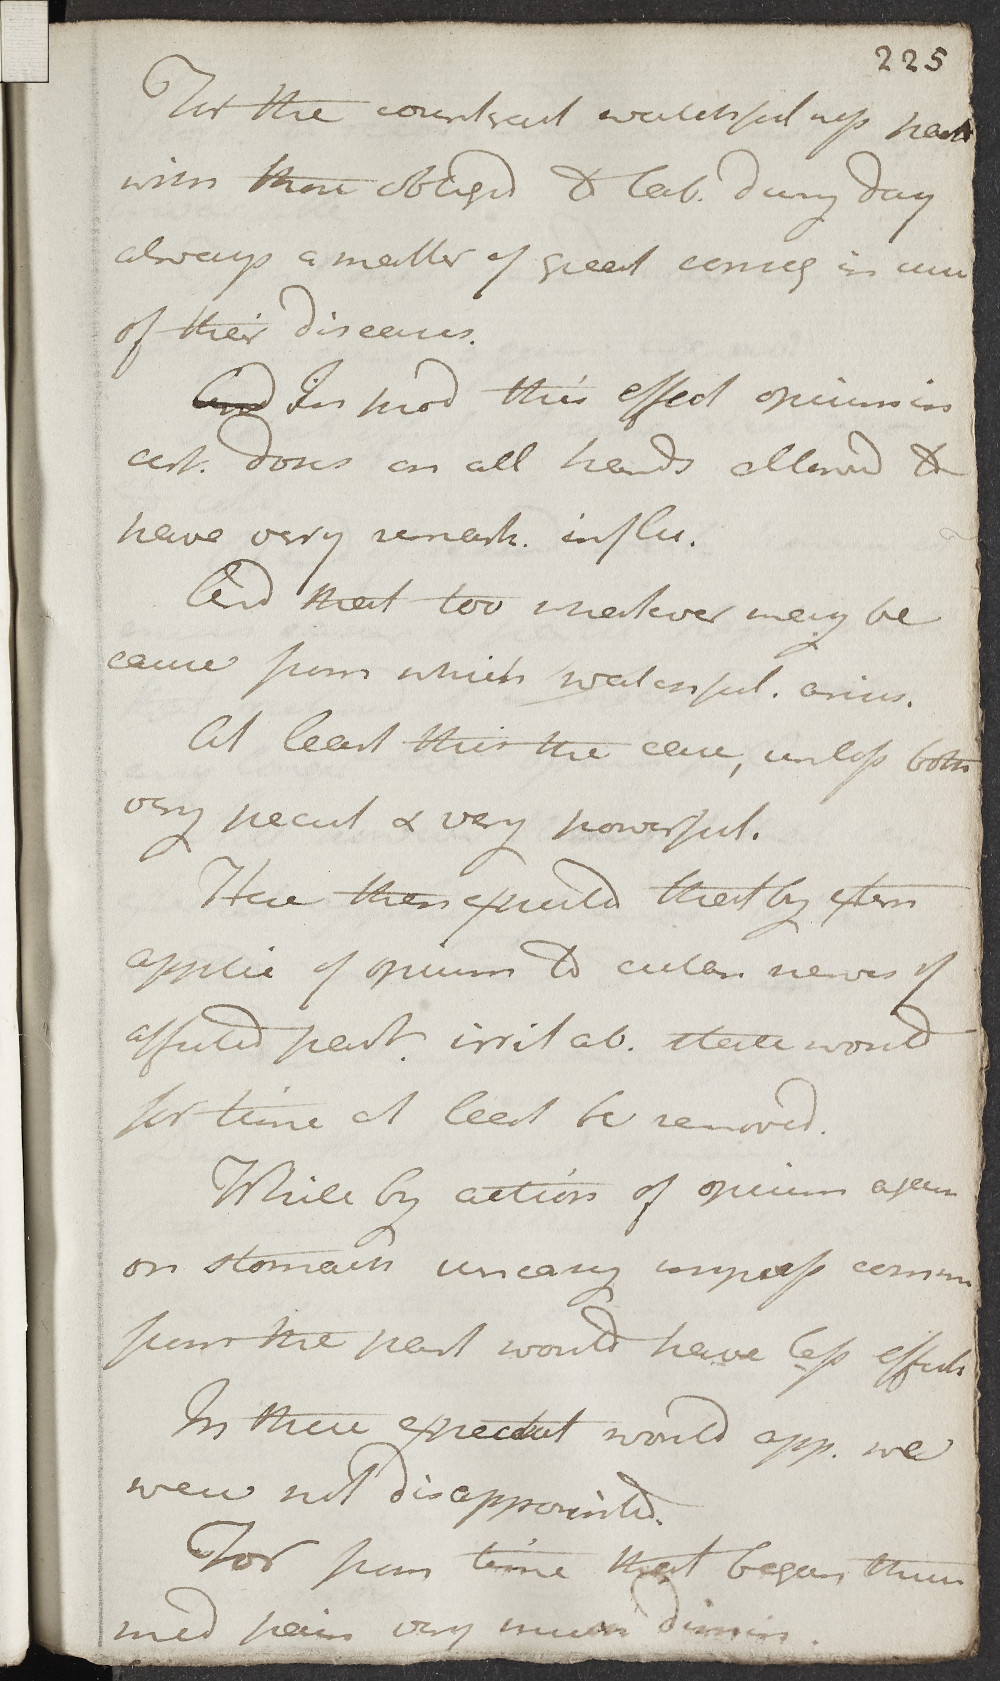 225
For the counteract watchfulness
with those obliged to lab. During day
always a matter of great conseq in
of their diseases.
And In prod this effect opium in
cert. doses on all hands allowed to
have very remark. influ.
And that too whatever may be
cause from which watchful. arises.
At least this the case, unless both
very pecul & very powerful.
Here then expected that by extern
applic of opium to cutan nerves of
affected part. irritab. state would
for time at least be removed.
While by action of opium again
on stomach uneasy impress comm
from the part would have less effects
In these expectat would app. we
were not disappointed.
For from time that began them
med pain very much dimin.